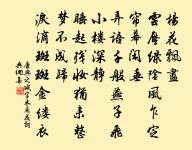 楊花飄盡
雲壓綠陰風乍定
簾幕閑垂
弄語千般燕子飛
小樓深靜
睡起殘妝猶未整
夢不成歸
淚滴斑斑金縷衣